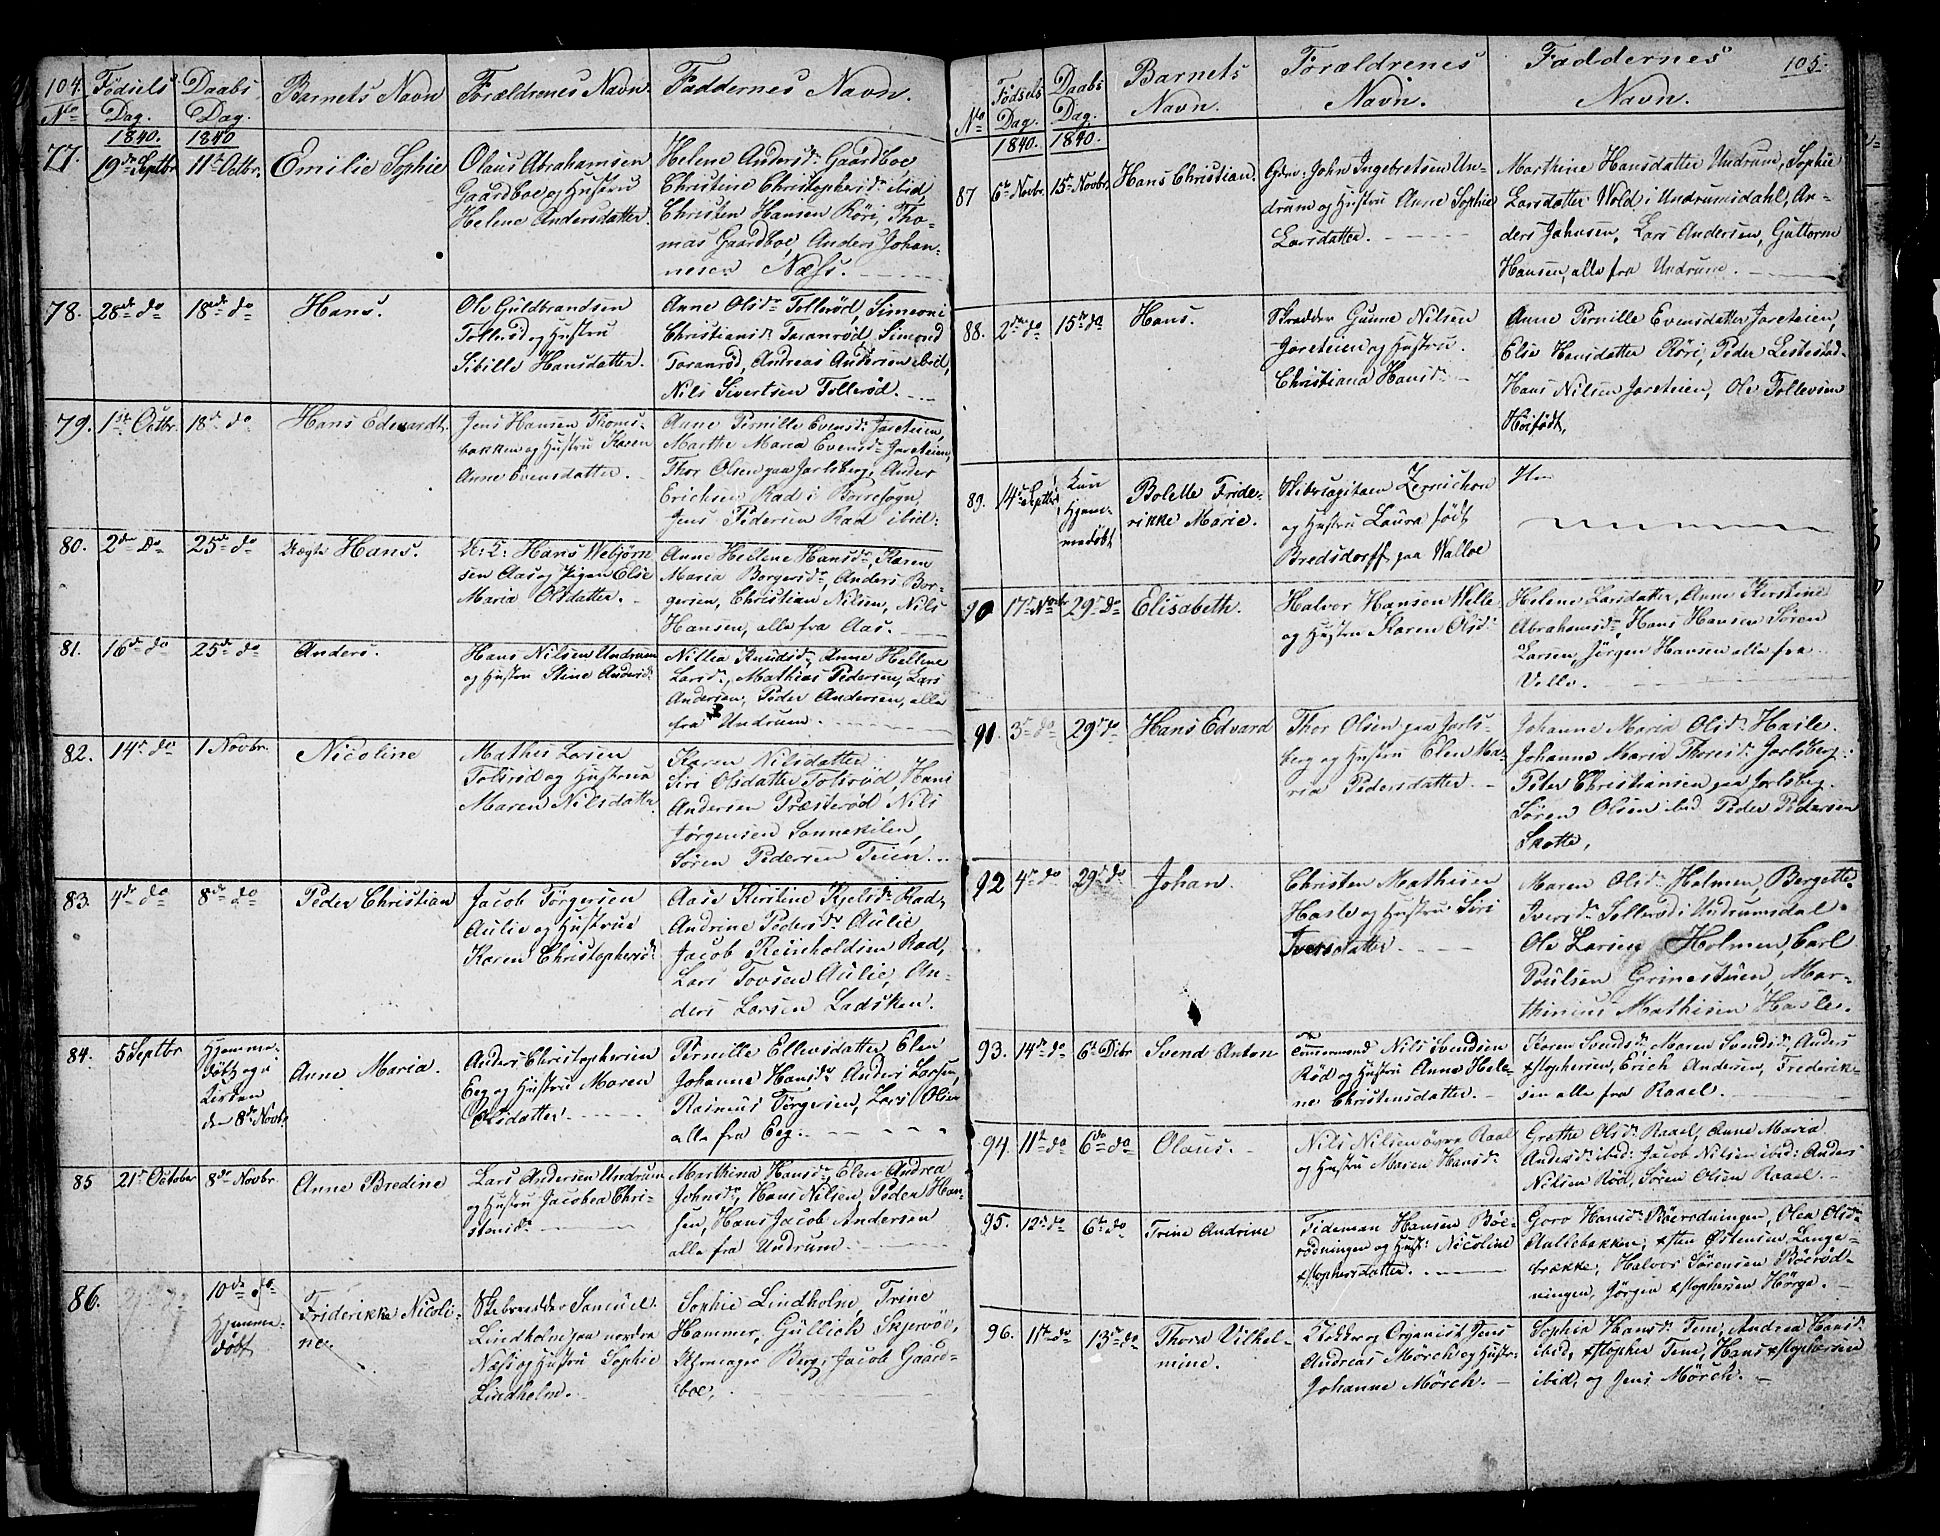 104.
No
Fødsels
Dag.
Daabs
Dag.
Barnets Navn
Forældrenes Navn.
Faddernes Navn.
1840.
1840
77. 19de Septbr. 11te Octbr. Emilie Sophie
Olaus Abrahamsen
Gaardboe og Hustru
Helene Andersdatter.
Helene Andersdr Gaardboe,
Christine Christophersdr ibid,
Christen Hansen Röri, Tho-
mas Gaardboe, Anders Johan-
nesen Næss.
78. 28de do 18de do Hans.
Ole Guldbrandsen
Tollerød og Hustru
Sibille Hansdatter.
Anne Olsdr Tollerød, Simeoni
Christiansdr Toranrød, Simond
Toranrød, Andreas Andersen ibid,
Nils Sivertsen Tollerød.
79. 1ste Octbr. 18de do Hans Edvardt.
Jens Hansen Thoms-
bakken og Hustru Karen
Anne Evensdatter.
Anne Pernille Evensdr Jareteien,
Marthe Maria Evensdr Jareteien,
Thor Olsen paa Jarlsberg, Anders
Erichsen Rad i Borresogn
Jens Pedersen Rad ibid:
80. 2de do 25de do Uægte Hans.
Hans Webjørn-
sen Aas og Pigen Else
Maria Olsdatter.
Anne Helene Hansdr, Karen
Maria Borgersdr, Anders Bor-
gersen, Christian Nilsen, Nils
Hansen, alle fra Aas.
81. 16de do 25de do Anders.
Hans Nilsen Undrum
og Hustru Stine Andersdr
Nillia Knudsdr, Anne Hellene
Larsdr, Mathias Pedersen, Lars
Andersen, Peder Andersen, alle
fra Undrum.
82. 14de do 1 Novbr. Nicoline
Mathis Larsen
Tolsrød og Hustrue
Maren Nilsdatter
Karen Nilsdatter
Siri Olsdatter Tolsrød, Hans
Andersen Præsterød Nils
Jørgensen Sannekilen,
Søren Pedersen Teien.
83. 4de do 8de do Peder Christian
Jacob Törgersen
Aulie og Hustrue
Karen Christophersdr
Aase Kirstine Kjelsdr Rad,
Andrine Pedersdr Aulie
Jacob Reinholdsen Rad,
Lars Tovsen Aulie, An-
ders Larsen Ladsken.
84. 5 Septbr
Hjemme-
døbt og i
Kirken
den 8de Novbr
Anne Maria.
Anders Christophersen
Eeg og Hustru Maren
Olsdatter.
Pernille Ellevsdatter Elen
Johanne Hansdr Anders Larsen,
Rasmus Törgersen, Lars Olsen
alle fra Eeg.
85 21de October 8de Novbr. Anne Bredine
Lars Andersen Undrum
og Hustru Jacobea Chri-
stensdr
Marthina Hansdr, Elen Andrea
Johnsdr, Hans Nilsen, Peder Han-
sen, Hans Jacob Andersen
alle fra Undrum.
86.
10de do
Hjemme-
døbt
Friderikke Nicoli-
ne.
Skibsredder Samuel
Lindholm paa nordre
Næs og Hustru Sophie
Lindholm.
Sophie Lindholm, Trine
Hammer, Güllich Skjervøe,
Berg, Jacob Gaard-
boe,
105.
No
Fødsels
Dag.
Daabs
Dag.
Barnets
Navn.
Forældrenes
Navn.
Faddernes
Navn.
1840. 1840.
87 6te Novbr. 15de Novbr. Hans Christian.
Gdbr: John Ingebretsen Un-
drum og Hustru Anne Sophie
Larsdatter.
Marthine Hansdatter Undrum, Sophie
Larsdatter Wold i Undrumsdahl, An-
ders Johnsen, Lars Andersen, Guttorm
Hansen, alle fra Undrum.
88. 2den do 15de do Hans.
Skredder Gunne Nilsen
Jareteien og Hustru
Christiana Hansdr
Anne Pernille Evensdatter Jareteien,
Else Hansdatter Röri, Peder Lestestad
Hans Nilsen Jareteien, Ole Tollevsen
Høifødt,
89. 14de Septbr.
Kun
Hjem-
medøbt
Bolette Fride-
rikke Marie.
Skibscapitaen Zernichow
og Hustru Laura født
Bredsdorff, paa Walloe
90 17de Novbr 29de do Elisabeth.
Halvor Hansen Welle
og Hustru Karen Olsdr
Helene Larsdatter, Anne Kerstine
Abrahamsdr, Hans Hansen Søren
Larsen, Jørgen Hansen alle fra
Velle.
91. 3de do 29de do Hans Edvard
Thor Olsen paa Jarls-
berg og Hustru Elen Ma-
ria Pedersdatter.
Johanne Maria Olsdr Hasle.
Johanne Maria Thorsdr Jarlsberg.
Peter Christiansen paa Jarlsberg.
Søren Olsen ibid Peder Pedersen
Skotte,
92 4de do 29de do Johan.
Christen Mathisen
Hasle og Hustru Siri
Iversdatter
Maren Olsdr Holmen, Bergette
Iversdr Sollerød i Undrumsdal.
Ole Larsen Holmen, Carl
Poulsen Grinestuen, Mar-
thinius Mathisen Hasle.
93. 14de do 6te Decbr. Svend Anton
Tømmermand Nils Svendsen
Rød og Hustru Anne Hele-
ne Christensdatter.
Karen Svendsdr, Maren Svendsdr, Anders
Xstophersen, Erich Andersen, Frederik-
sen alle fra Raael.
94. 11te do 6te do Olaus.
Nils Nilsen övre Raal
og Hustru Maren Hansdr
Grethe Olsdr Raael, Anne Maria
Andersdr ibid: Jacob Nilsen ibid: Anders
Nilsen Rød, Søren Olsen Raael.
95. 12te do 6te do Trine Andrine
Tideman Hansen Böe-
rødningen og Hust: Nicoline
Xstophersdatter.
Goro Hansdr Böerødningen, Olea Olsdr
Aullebakken; Xsten Østensen Lange-
brække; Halvor Sörensen Böerød-
ningen, Jörgen Xstophersen Hörge.
96. 11te do 13de do Thora Vilhel-
mine.
Klokker og Organist Jens
Andreas Mörch og Hustr.
Johanne Mörch.
Sophia Hansdr Tem, Andrea Hansdr
ibid, Xstopher Tem, Hans Xstophersen
ibid, og Jens Mörch.